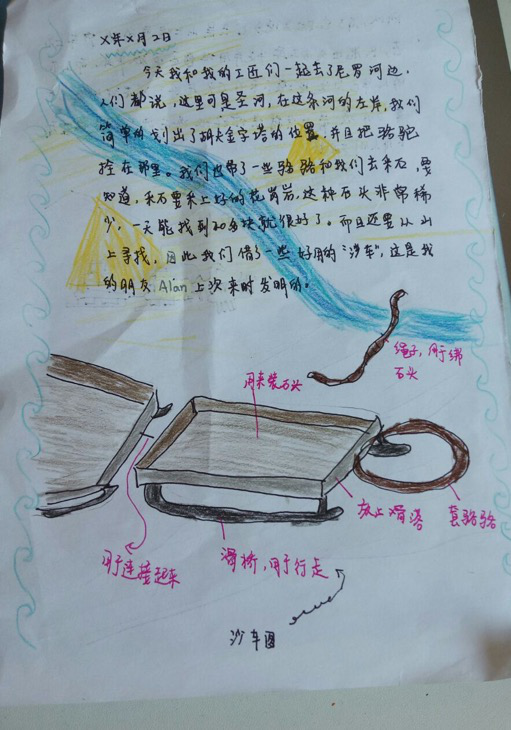 X年X月2日
今天我和我的工匠们一起去了尼罗河边,
人们都说,这里可是圣河,在这条河的左岸,我们
简单的划出了胡夫金字塔的位置,并且把骆驼
拴在那里。我们也带了一些骆骆和我们去采石,要
知道,采石要采上好的花岗岩,这种石头非常稀
少,一天能找到20多块就很好了。而且还要从山
上寻找,因此我们借了一些好用的“沙车”,这是我
的朋友Alan上次来时发明的。
绳子,用于绑
石头
用来装石头
防止滑落
套骆骆
用于连接起来
滑桥,用于行走
沙车图